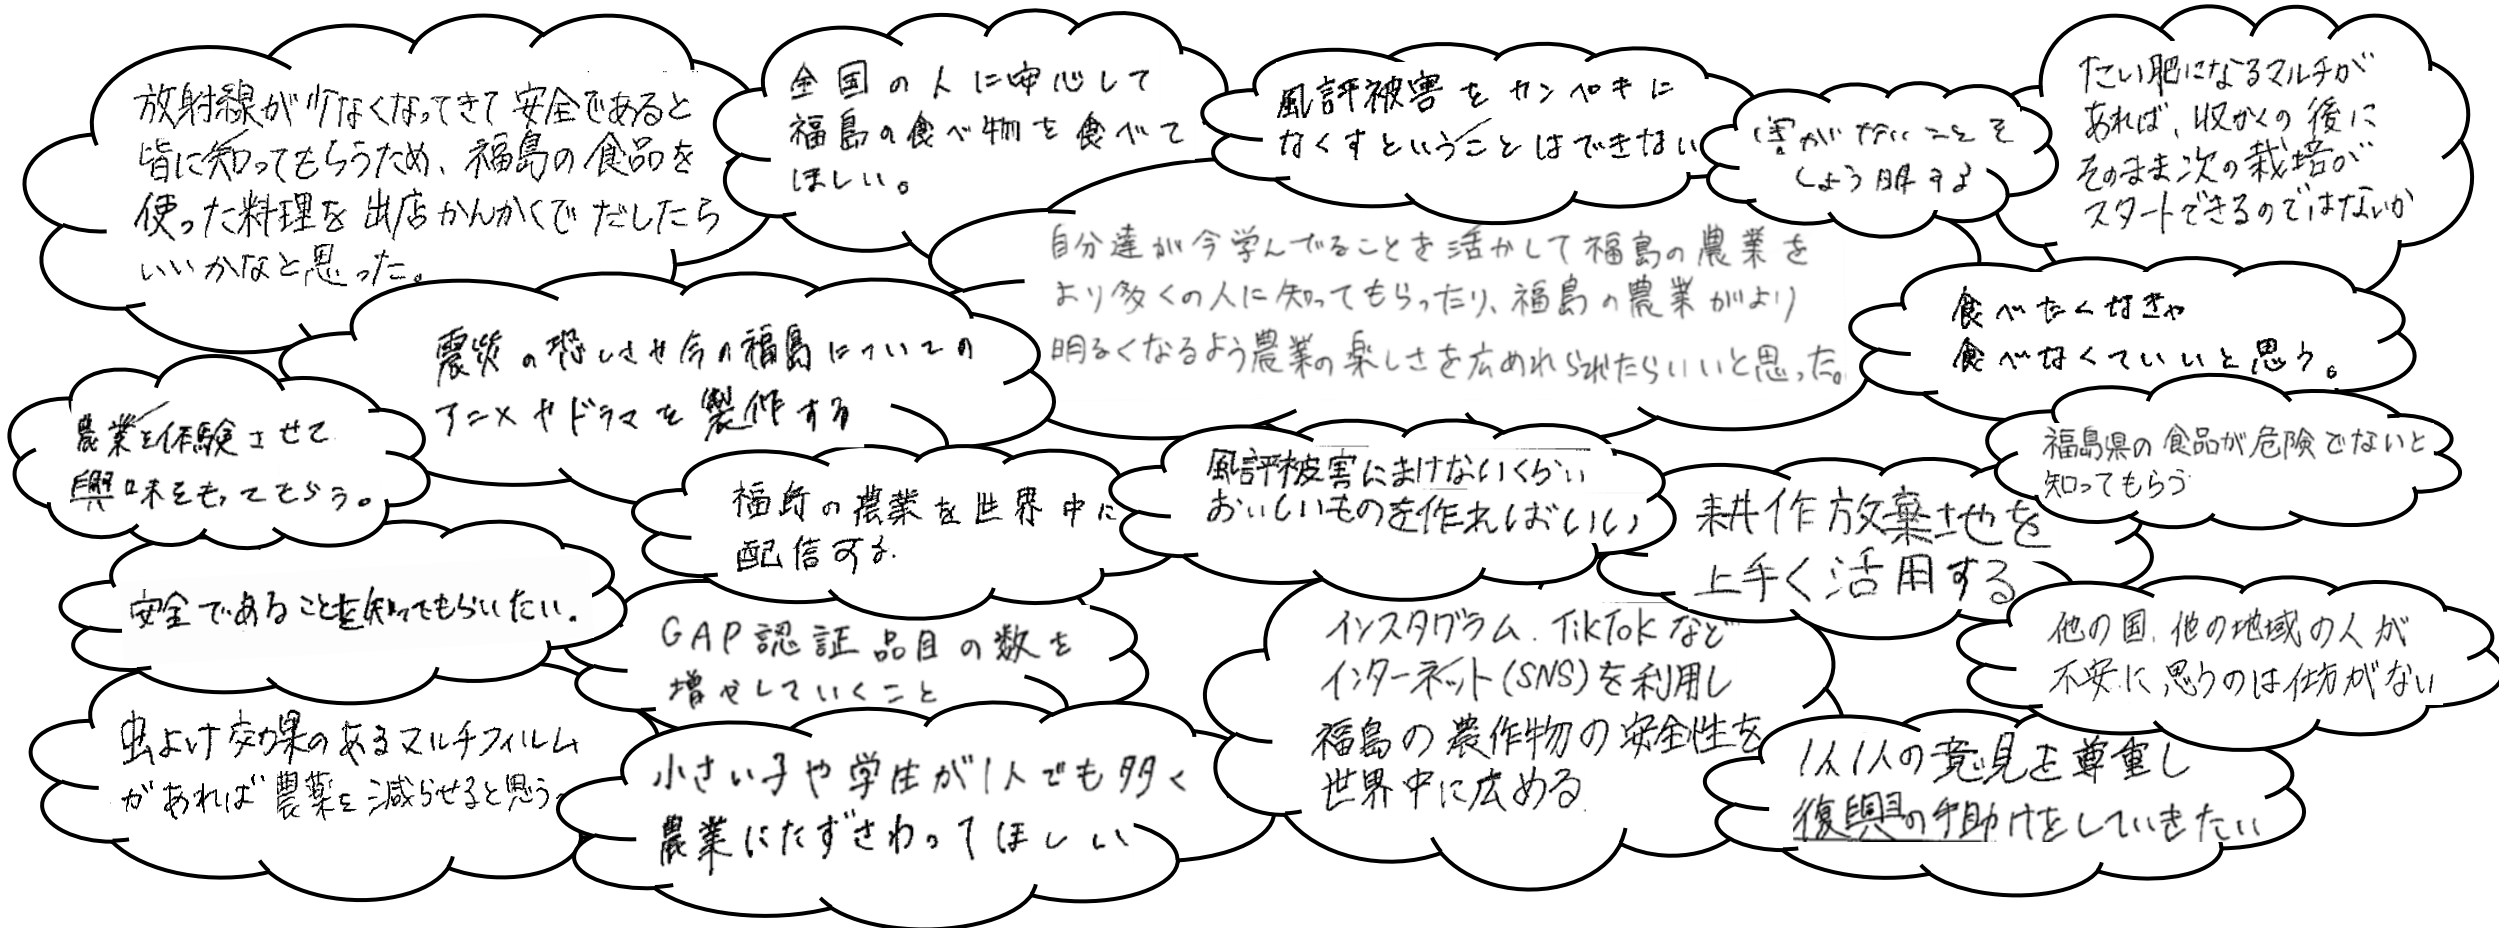 放射線が少なくなってきて安全であると
皆に知ってもらうため、福島の食品を
使った料理を出店かんかくでだしたら
いいかなと思った。
全国の人に安心して
福島の食べ物を食べて
ほしい。
風評被害をカンペキに
なくすということはできない
害がないことを
しょう明する
たい肥になるマルチが
あれば、収かくの後に
そのまま次の栽培が
スタートできるのではないか
自分達が今学んでることを活かして福島の農業を
より多くの人に知ってもらったり、福島の農業がより
明るくなるよう農業の楽しさを広めれられたらいいと思った。
震災の恐しさや今の福島についての
アニメやドラマを製作する
食べたくなきゃ
食べなくていいと思う。
農業を体験させて
興味をもってもらう。
福島の農業を世界中に
配信する.
風評被害にまけないくらい
おいしいものを作ればいい
福島県の食品が危険でないと
知ってもらう
耕作放棄地を
上手く活用する
安全であることを知ってもらいたい。
GAP認証品目の数を
増やしていくこと
インスタグラム、TikTokなど
インターネット(SNS)を利用し
福島の農作物の安全性を
世界中に広める
他の国、他の地域の人が
不安に思うのは仕方がない
虫よけ効果のあるマルチフィルム
があれば農薬を減らせると思う
小さい子や学生が1人でも多く
農業にたずさわってほしい
1人1人の意見を尊重し
復興の手助けをしていきたい